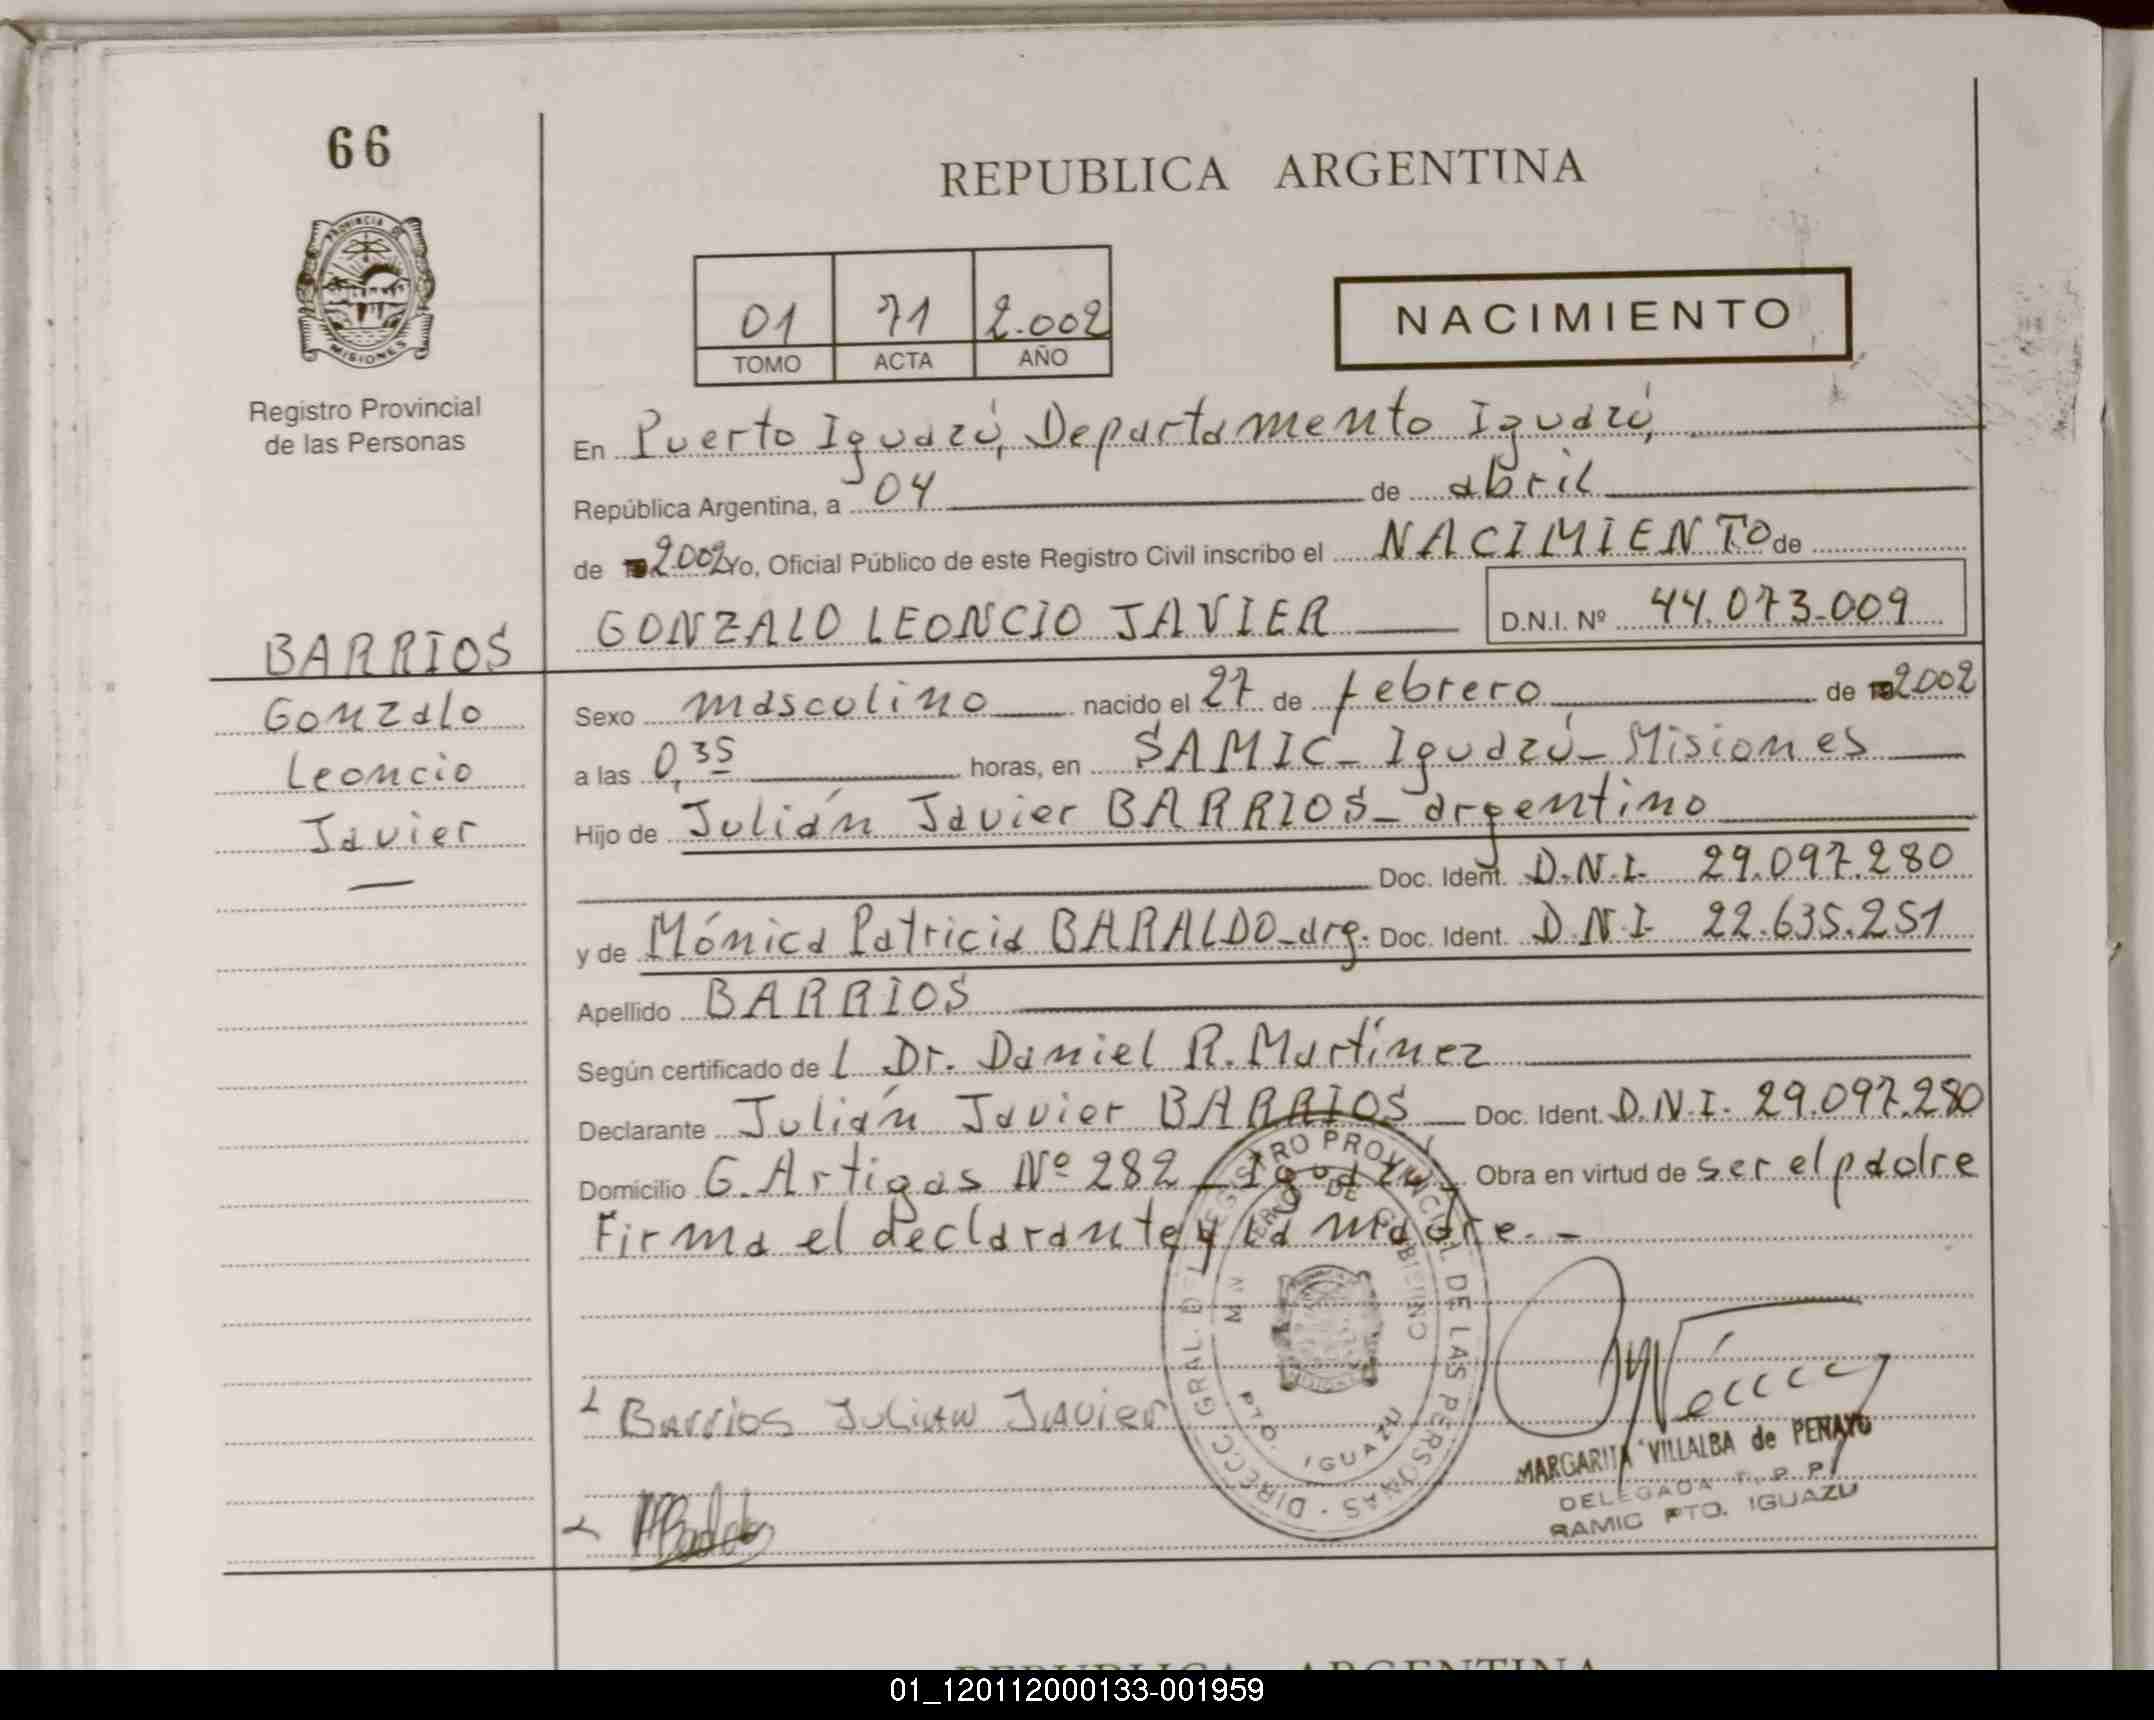 66
REPUBLICA ARGENTINA
PROVINCIA DE
MISIONES
Registro Provincial
de las Personas
01 71 2.002
TOMO ACTA AÑO
NACIMIENTO
En Puerto Iguazú, Departamento Iguazú,
República Argentina, a 04 de abril
de 2002 Yo, Oficial Público de este Registro Civil inscribo el NACIMIENTO de
GONZALO LEONCIO JAVIER D.N.I. Nº 44.073.009
BARRIOS
Gonzalo
Leoncio
Javier
Sexo masculino nacido el 27 de febrero de 2002
a las 0,35 horas, en SAMIC - Iguazú - Misiones
Hijo de Julián Javier BARRIOS - argentino
Doc. Ident. D.N.I. 29.097.280
y de Mónica Patricia BARALDO - arg. Doc. Ident. D.N.I. 22.635.251
Apellido BARRIOS
Según certificado de l Dr. Daniel R. Martínez
Declarante Julián Javier BARRIOS Doc. Ident. D.N.I. 29.097.280
Domicilio G. Artigas Nº 282 - Iguazú, Obra en virtud de ser el padre
Firma el declarante y la madre. -
DIRECC. GRAL. DEL REGISTRO PROVINCIAL DE LAS PERSONAS
MINISTERIO DE GOBIERNO
PTO. IGUAZU
Barrios Julian Javier
MARGARITA VILLALBA de PENAYO
DELEGADA
SAMIC PTO. IGUAZU
REPUBLICA ARGENTINA
01_120112000133-001959